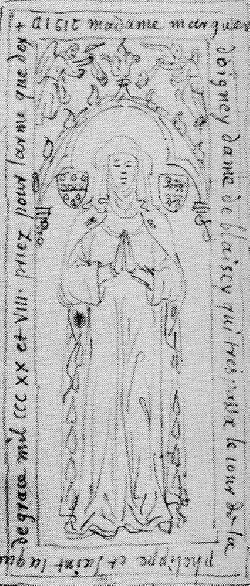 + ci gist madame
doigney dame de blaisey qui trespassa le iour de la
phelippe et saint iaque
de grace mil CCCC XX et VIII. priez pour larme que dex